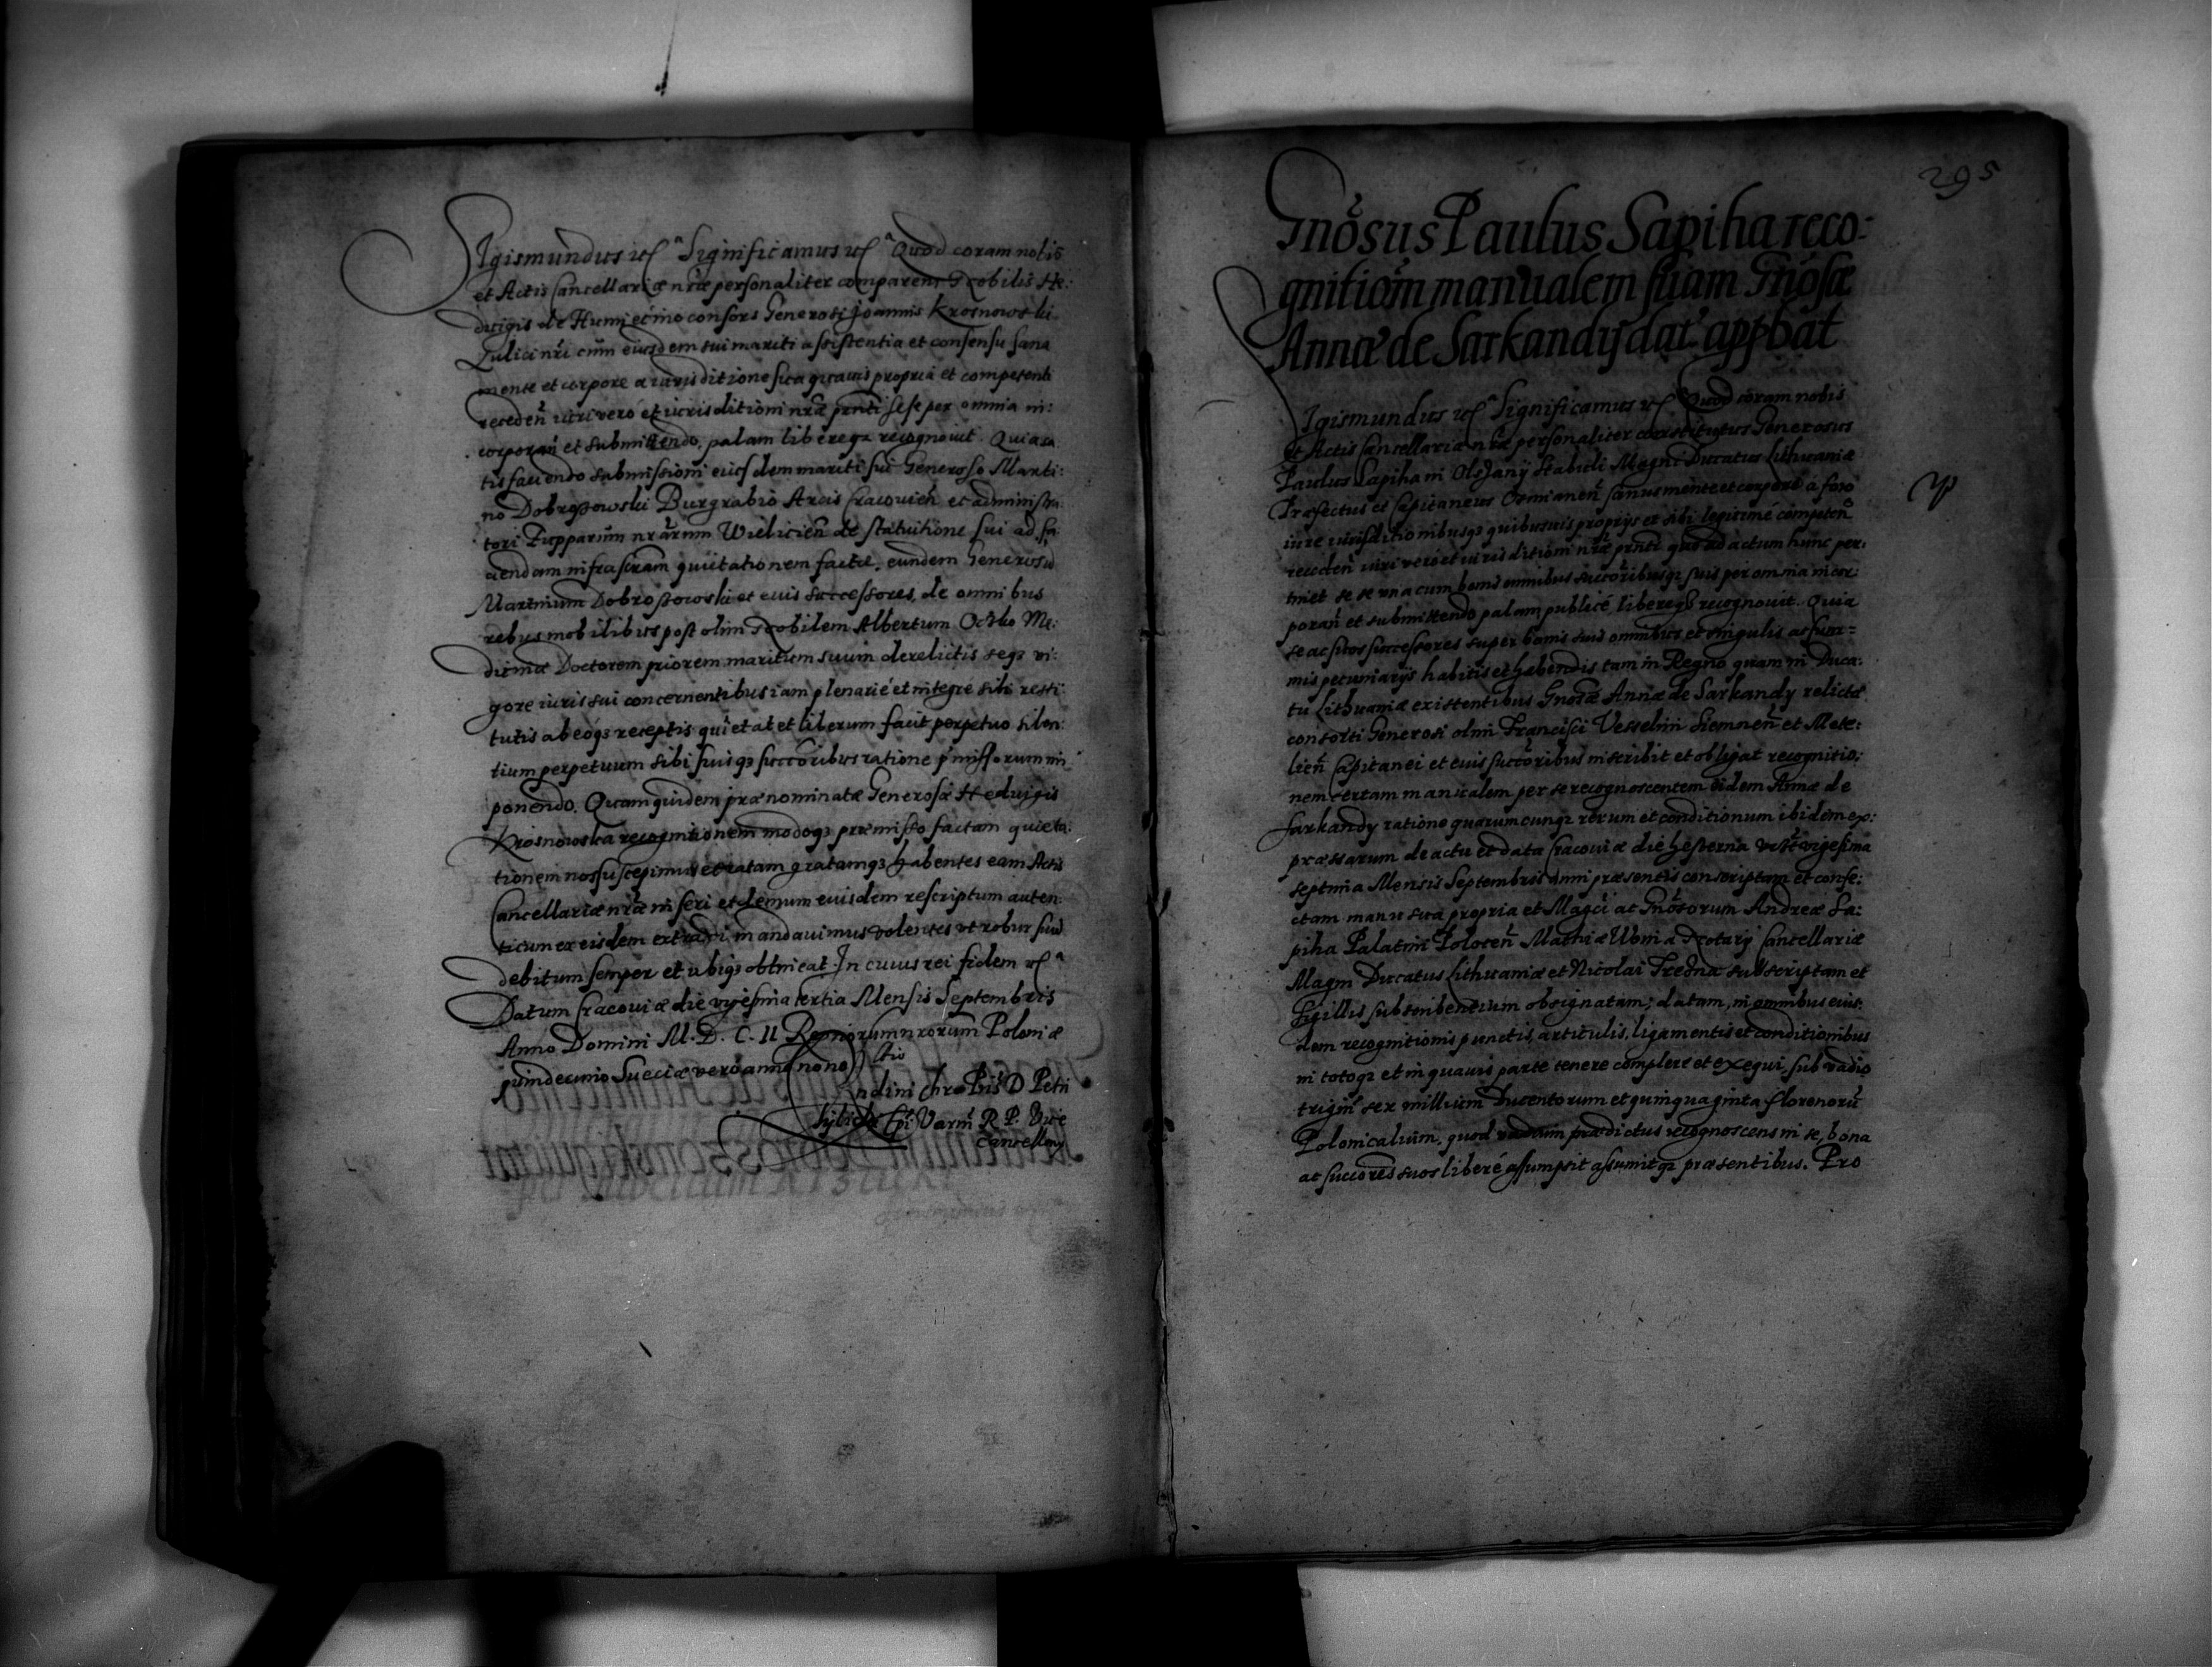 Sigismundus etc Significamus etc Quod coram nobis
et Actis Cancellariæ nr̃æ personaliter comparens Nobilis He:
duigis de consors Generosi Joannis Krosnowski
Aulici nr̃i cum eiusdem sui mariti assistentia et consensu sana
mente et corpore a iurisditione sua quauis propria et competenti
receden̄ iuri vero et iurisditioni nr̃æ pr̃nti sese per omnia in:
corporan̄ et submittendo, palam libereq3 recognouit. Quia sa
tisfaciendo submissioni eiusdem mariti sui Generoso Marti:
no Dobroszowski Burgrabio Arcis Cracovien̄ et administra
tori Zupparum nr̃arum Wielicien̄ de statuitione sui ad fa
ciendam infrascr̃am quietationem factæ, eundem Generosū
Martinum Dobroszowski et euis successores, de omnibus
rebus mobilibus post olim Nobilem Albertum Oczko Me:
dicinæ Doctorem priorem maritum suum derelictis seq3 vi:
gore iuris sui concernentibus iam plenarié et integre sibi resti:
tutis ab eóq3 receptis quietat et liberum facit perpetuo silen:
tium perpetuum sibi suisq3 succōribus ratione p̃missorum im
ponendo. Quam quidem prænominatæ Generosæ Heduigis
Krosnowska recognitionem modoq3 præmisso factam quieta:
tionem nos suscepimus et ratam gratamq3 habentes eam Actis
Cancellariæ nr̃æ inseri et demum euisdem rescriptum auten:
ticum ex eisdem extradi mandauimus volentes vt robur suū
debitum semper et ubiq3 obtineat. In cuius rei fidem etc
Datum Cracouiæ die vigesima tertia Mensis Septembris
Anno Domini M. D. C. II Regnorum nrorum Poloniæ
quindecimo Sueciæ vero anno nono
R. P. Vice
Cancellarij
295
Gnōsus Paulus Sapiha reco-
gnitiōm manualem suam Gnōsæ
Annæ de Sarkandy dat̃ appbat
Sigismundus etc Significamus etc Quod coram nobis
et Actis Cancellariæ nr̃æ personaliter constitutus Generosus
Paulus Sapiha in Olszany Stabuli Magni Ducatus Lithuaniæ
Præfectus et Capitaneus Osmianen̄ sanus mente et corpore a foro
iure iurisditionibusq3 quibusuis proprijs et sibi legitime competen̄
receden̄ iuri vero et iurisditioni nr̃æ pr̃nti quo ad actum hunc per:
tinet se se vna cum bonis omnibus succōribusq3 suis per omnia incor:
poran̄ et submittendo palam publicé libereq3 recognouit. Quia
se ac suos successores super bonis suis omnibus et singulis ac sum=
mis pecuniarijs habitis et habendis tam in Regno quam in Duca:
tu Lithuaniæ existentibus Gnosæ Annæ de Sarkandy relictæ
consorti Generosi olim Francisci Vesselini Siemnen̄ et Mete:
lien̄ Capitanei et euis succōribus inscribit et obligat recognitio:
nem certam manualem per se recognoscentem eidem Annæ de
Sarkandy ratione quarumcunq3 rerum et conditionum ibidem ex:
præssarum de actu et data Cracouiæ die hesterna vigesima
septima Mensis Septembris anni præsentis conscriptam et confe:
ctam manu sua propria et Magci ac Gnōsorum Andreæ Sa:
piha Palatini Polocen̄ Mathiæ Woina Notarij Cancellariæ
Magni Ducatus Lithuaniæ et Nicolai Tryzna subscriptam et
Sigillis subscribentium obsignatam, datam, in omnibus euis:
dem recognitionis punctis, articulis, ligamentis et conditionibus
in totoq3 et in quauis parte tenere complere et exequi, sub vadio
trigin̄ sex millium ducentorum et quinquaginta florenorū
Polonicalium, quod vadium prædictus recognoscens in se, bona
ac succōres suos liberé assumpsit assumitq3 præsentibus. Pro